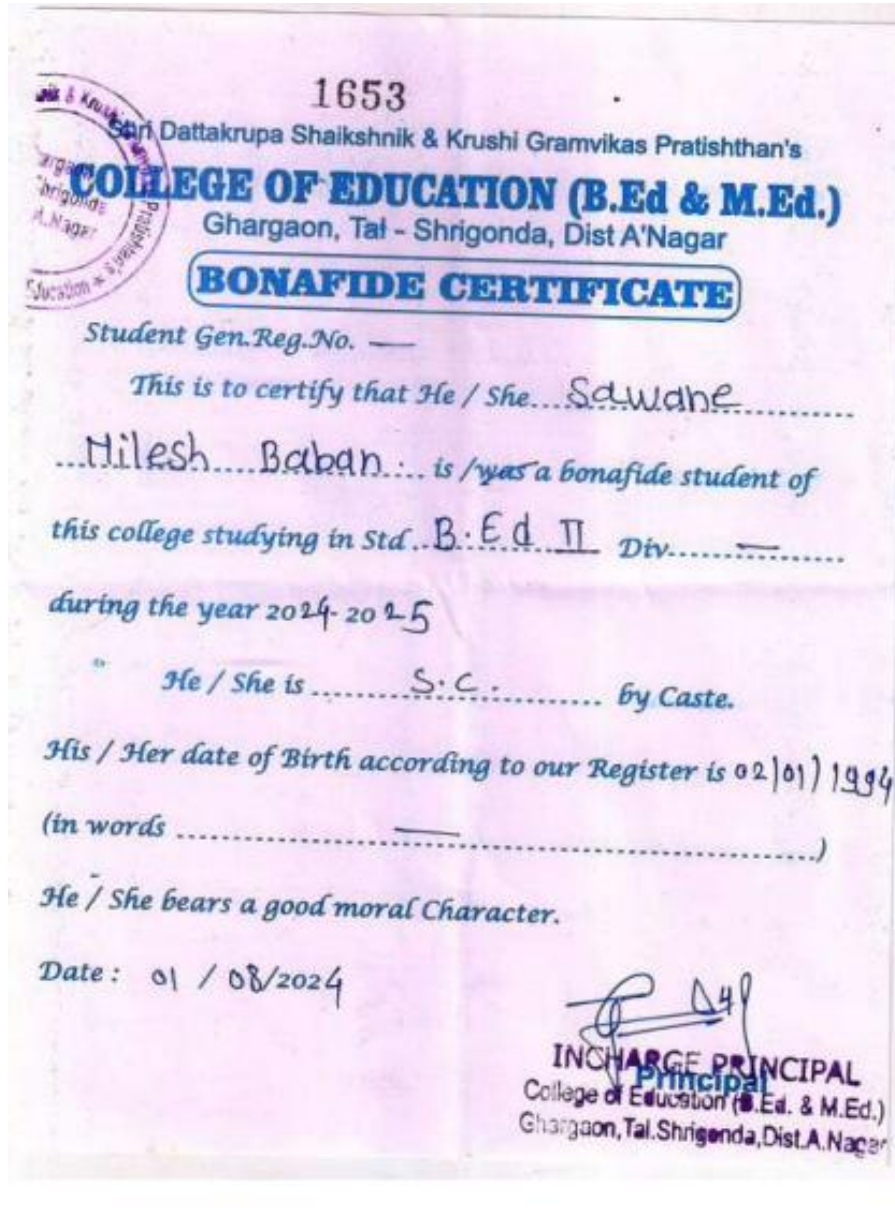 1653
Shri Dattakrupa Shaikshnik & Krushi Gramvikas Pratishthan's
COLLEGE OF EDUCATION (B.Ed & M.Ed.)
Ghargaon, Tal - Shrigonda, Dist A'Nagar
BONAFIDE CERTIFICATE
Student Gen.Reg.No. —
This is to certify that He / She.... Sawane ..............
...Nilesh.... Baban..... is /was a bonafide student of
this college studying in Std..B.Ed II Div.......—.........
during the year 2024-2025
He / She is .........S.C............... by Caste.
His / Her date of Birth according to our Register is 02/01/1994
(in words ....................—...............................................)
He / She bears a good moral Character.
Date : 01 / 08/2024
INCHARGE PRINCIPAL
Principal
College of Education (B.Ed. & M.Ed.)
Ghargaon, Tal.Shrigonda,Dist.A.Nagar